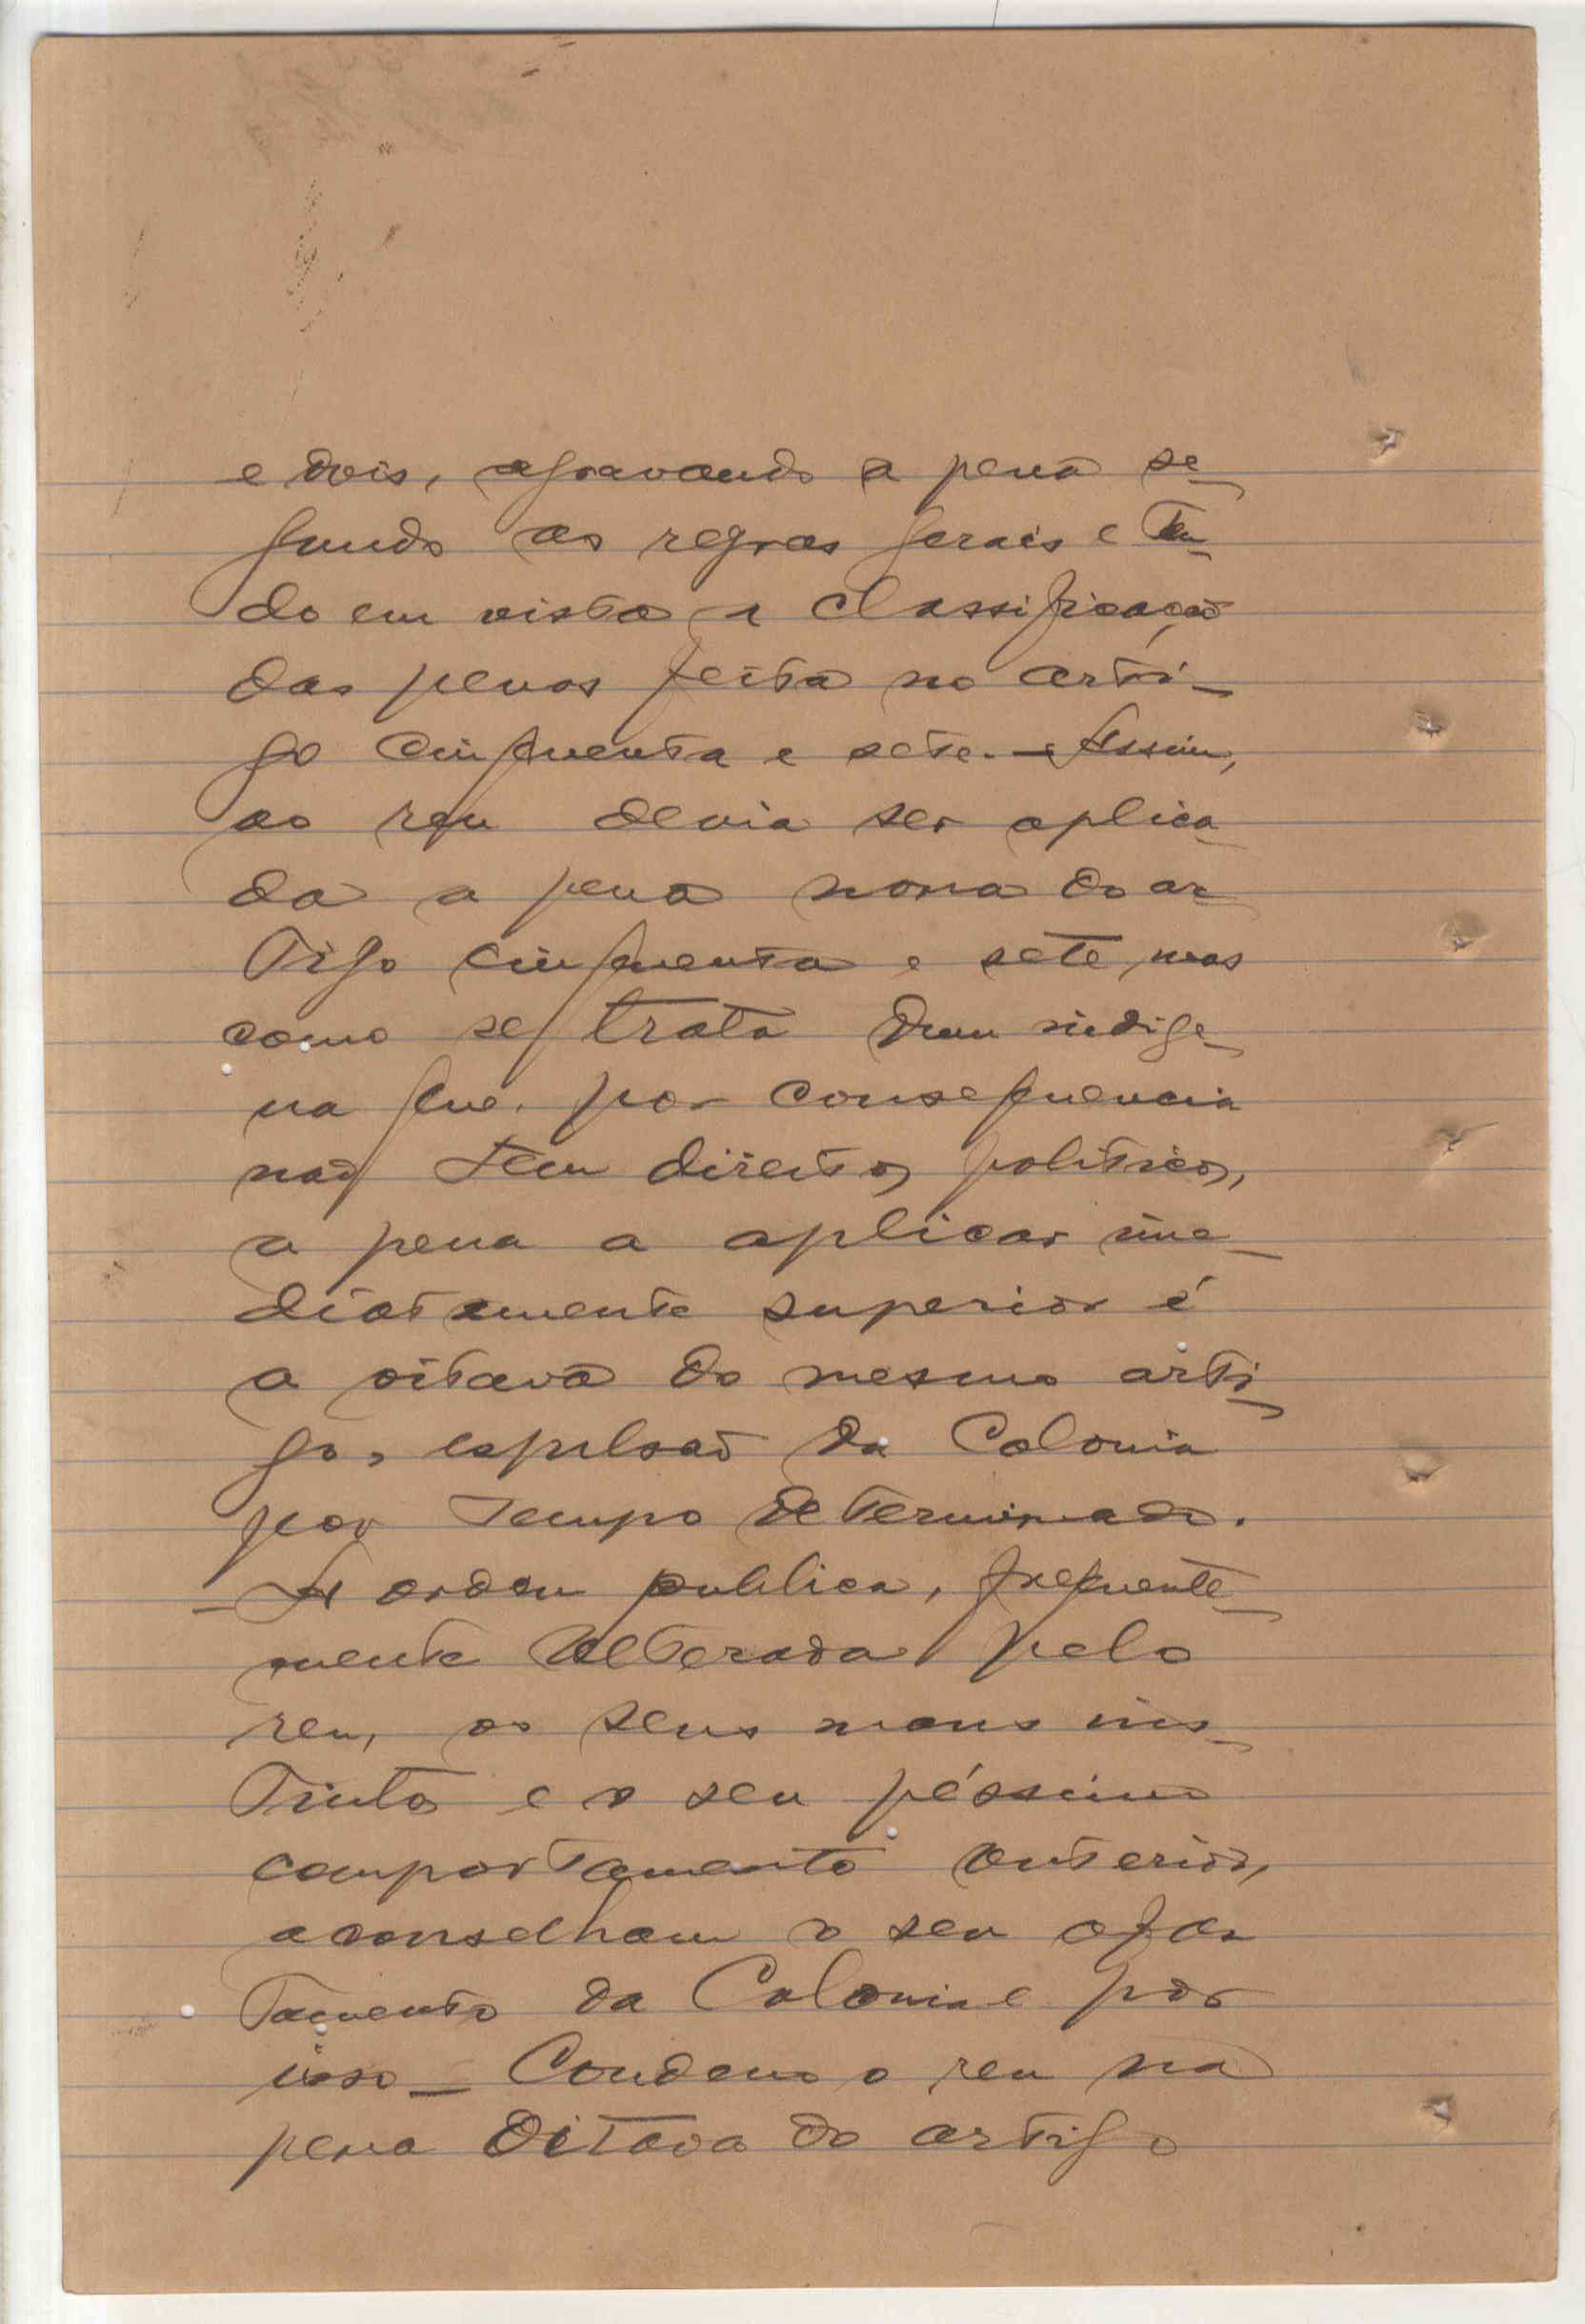 e dois, agravando a pena se-
gundo as regras gerais e ten-
do em vista a classificação
das penas feita no arti-
go cinquenta e sete. - Assim,
ao reu devia ser aplica-
da a pena nona do ar-
tigo cinquenta e sete, mas
como se trata dum indige-
na que, por consequencia
não tem direitos politicos,
a pena a aplicar ime-
diatamente superior é
a oitava do mesmo arti-
go, expulsão da Colonia
por tempo determinado.
- A ordem publica, frequente-
mente alterada pelo
reu, os seus maus ins-
tintos e o seu péssimo
comportamento anterior,
aconselham o seu afas
tamento da Colonia e por
isso - Condeno o reu na
pena Oitava do artigo